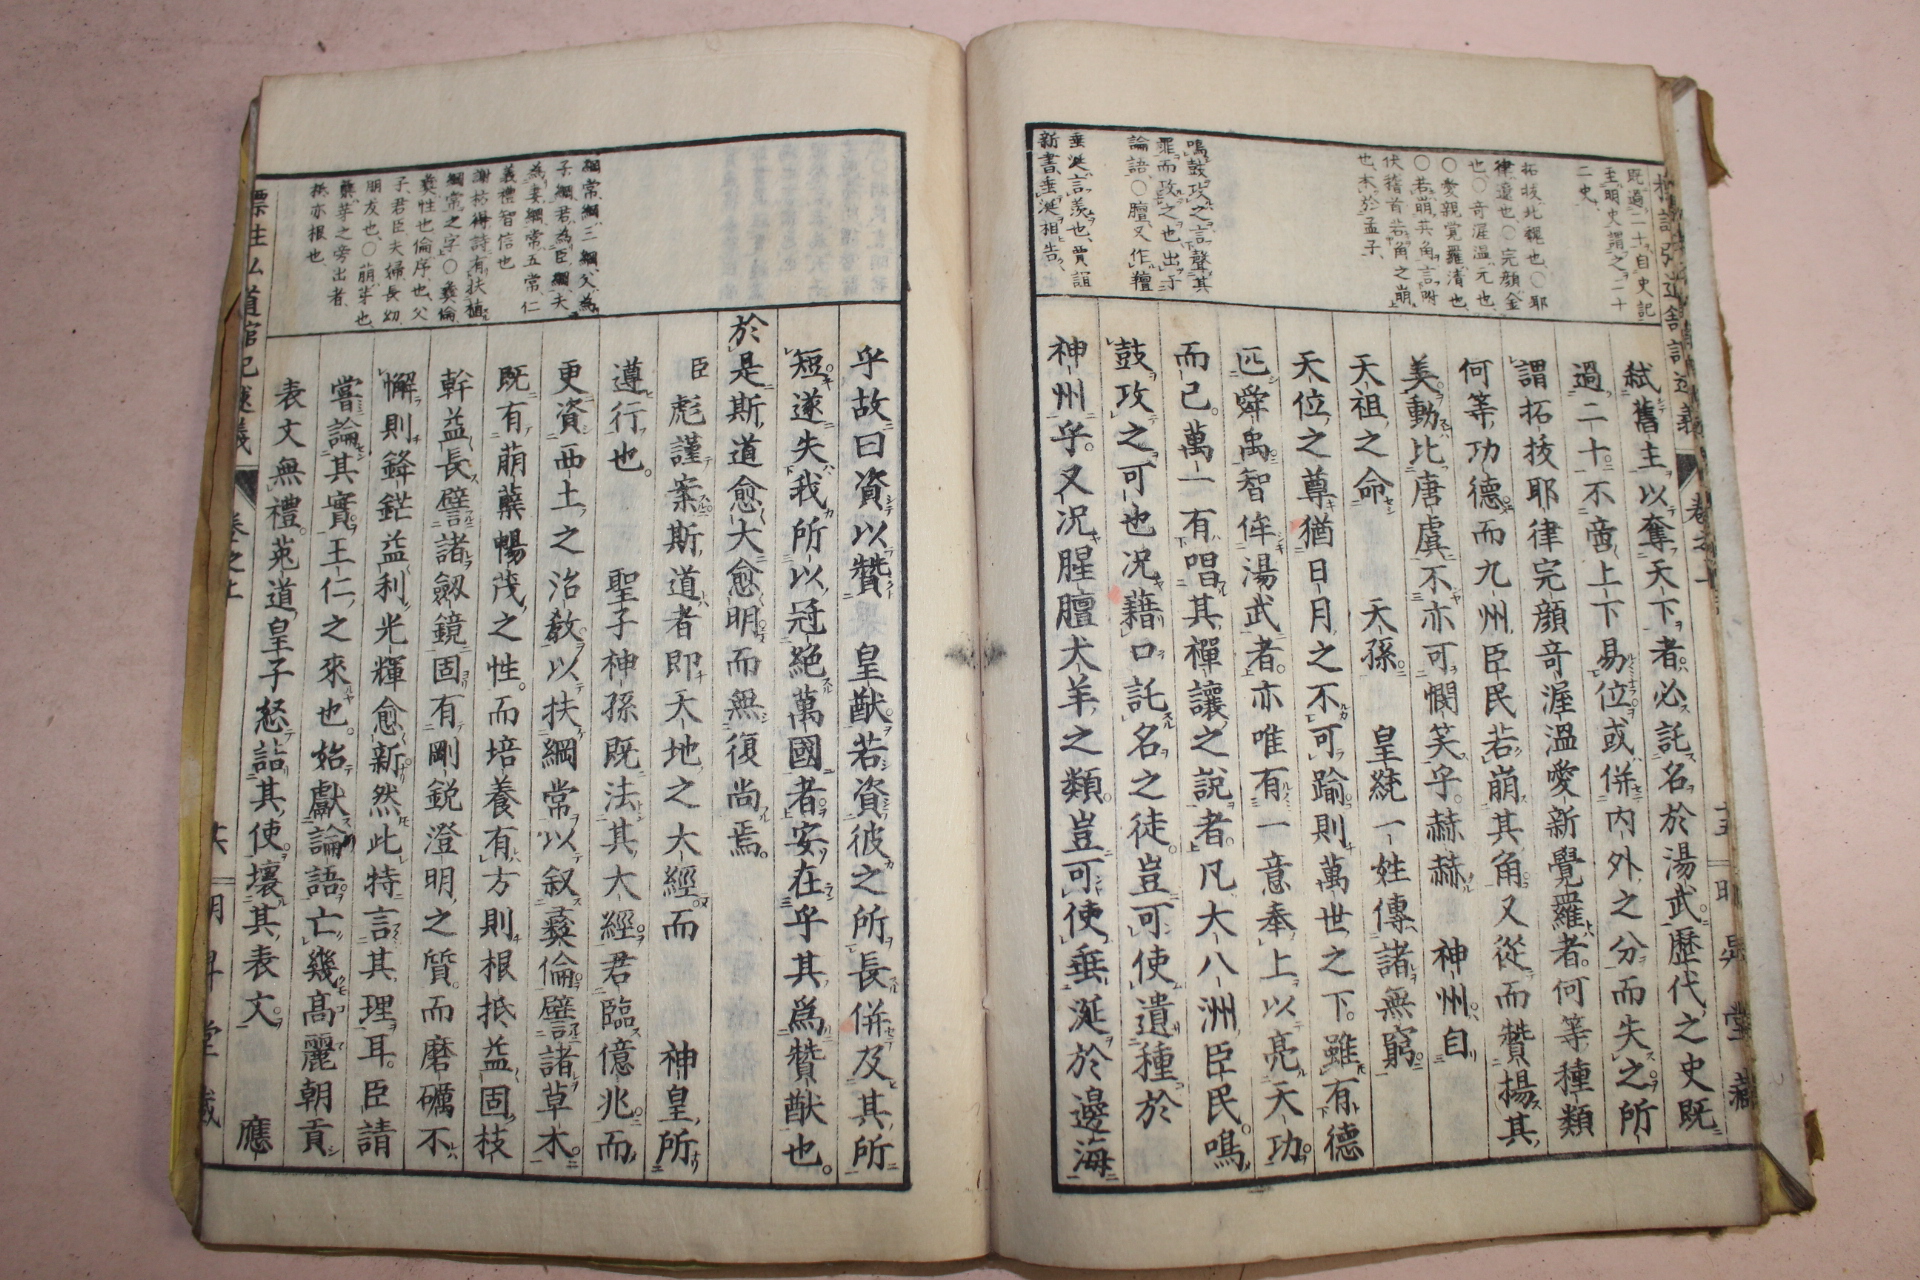 既過二十自史記
至明史謂之二十
二史
拓抜北魏也○耶
律遼也○完顔金
也○奇渥温元也
○愛親覚羅清也
○若崩其角言附
伏稽首若角之崩
也本於孟子
鳴鼓攻之言聲其
罪而攻之也出于
論語○膻又作羶
垂涎言羨也賈誼
新書垂涎相告
弑舊主以奪天下者必託名於湯武歷代之史既
過二十不啻上下易位或併内外之分而失之所
謂拓抜耶律完顔奇渥温愛新覺羅者何等種類
何等功德而九州臣民若崩其角又從而贊揚其
美動比唐虞不亦可憫笑乎赫赫 神州自
天祖之命 天孫 皇統一姓傳諸無窮
天位之尊猶日月之不可踰則萬世之下雖有德
匹舜禹智侔湯武者亦唯有一意奉上以亮天功
而已萬一有唱其禪讓之說者凡大八洲臣民鳴
鼓攻之可也况藉口託名之徒豈可使遺種於
神州乎又况腥膻犬羊之類豈可使垂涎於邊海
綱常綱三綱父為
子綱君為臣綱夫
為妻綱常五常仁
義禮智信也
謝枋得詩有扶植
綱常之字○彝倫
彝性也倫序也父
子君臣夫婦長幼
朋友也○萠芽也
蘖芽之旁出者
柢亦根也
乎故曰資以贊 皇猷若資彼之所長併及其所
短遂失我所以冠絶萬國者安在乎其爲贊猷也
於是斯道愈大愈明而無復尚焉
臣彪謹案斯道者即天地之大經而 神皇所
遵行也 聖子神孫既法其大經君臨億兆而
更資西土之治教以扶綱常以叙彝倫譬諸草木
既有萠蘖暢茂之性而培養有方則根柢益固枝
幹益長譬諸劔鏡固有剛鋭澄明之質而磨礪不
懈則鋒鋩益利光輝愈新然此特言其理耳臣請
嘗論其實王仁之來也始獻論語亡幾高麗朝貢
表文無禮菟道皇子怒詰其使壞其表文 應
標注弘道館記述義
卷之上
明 昇 堂 藏